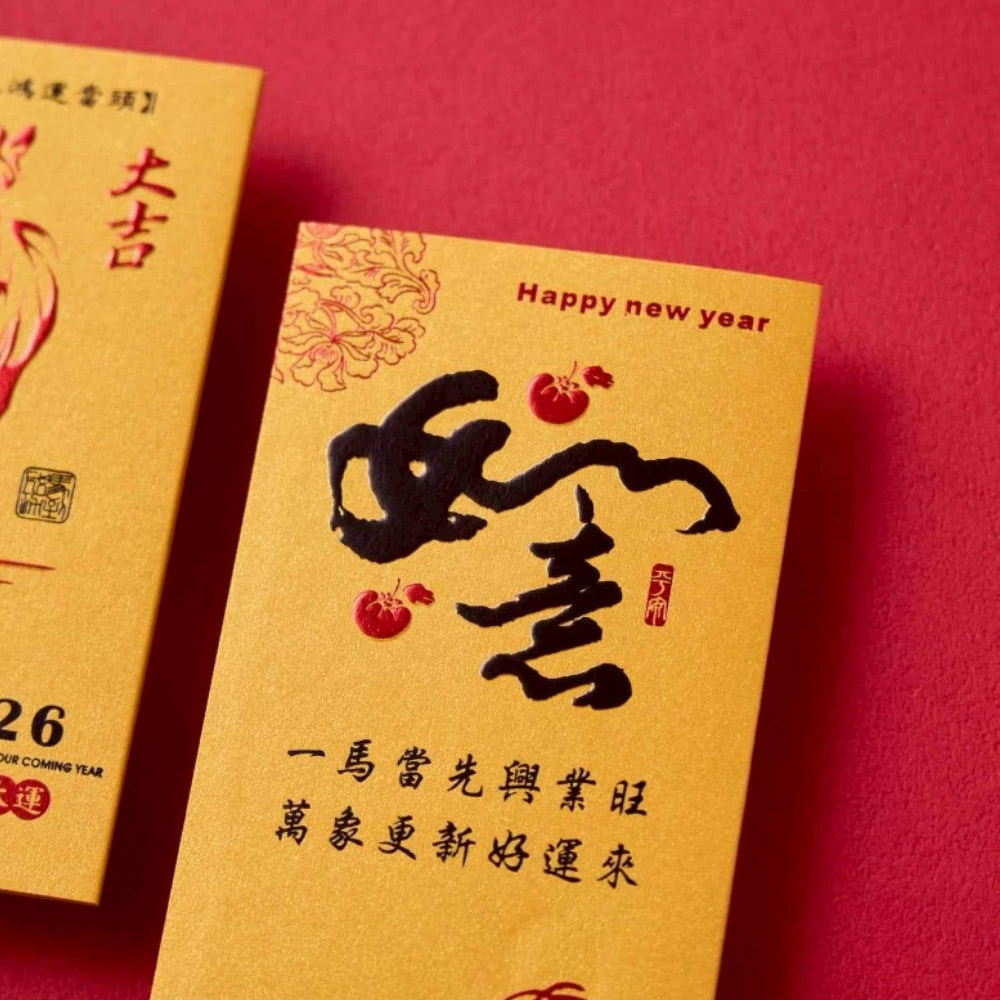 鴻運當頭】
大吉
26
OUR COMING YEAR
運
Happy new year
如意
平安
一馬當先興業旺
萬象更新好運來